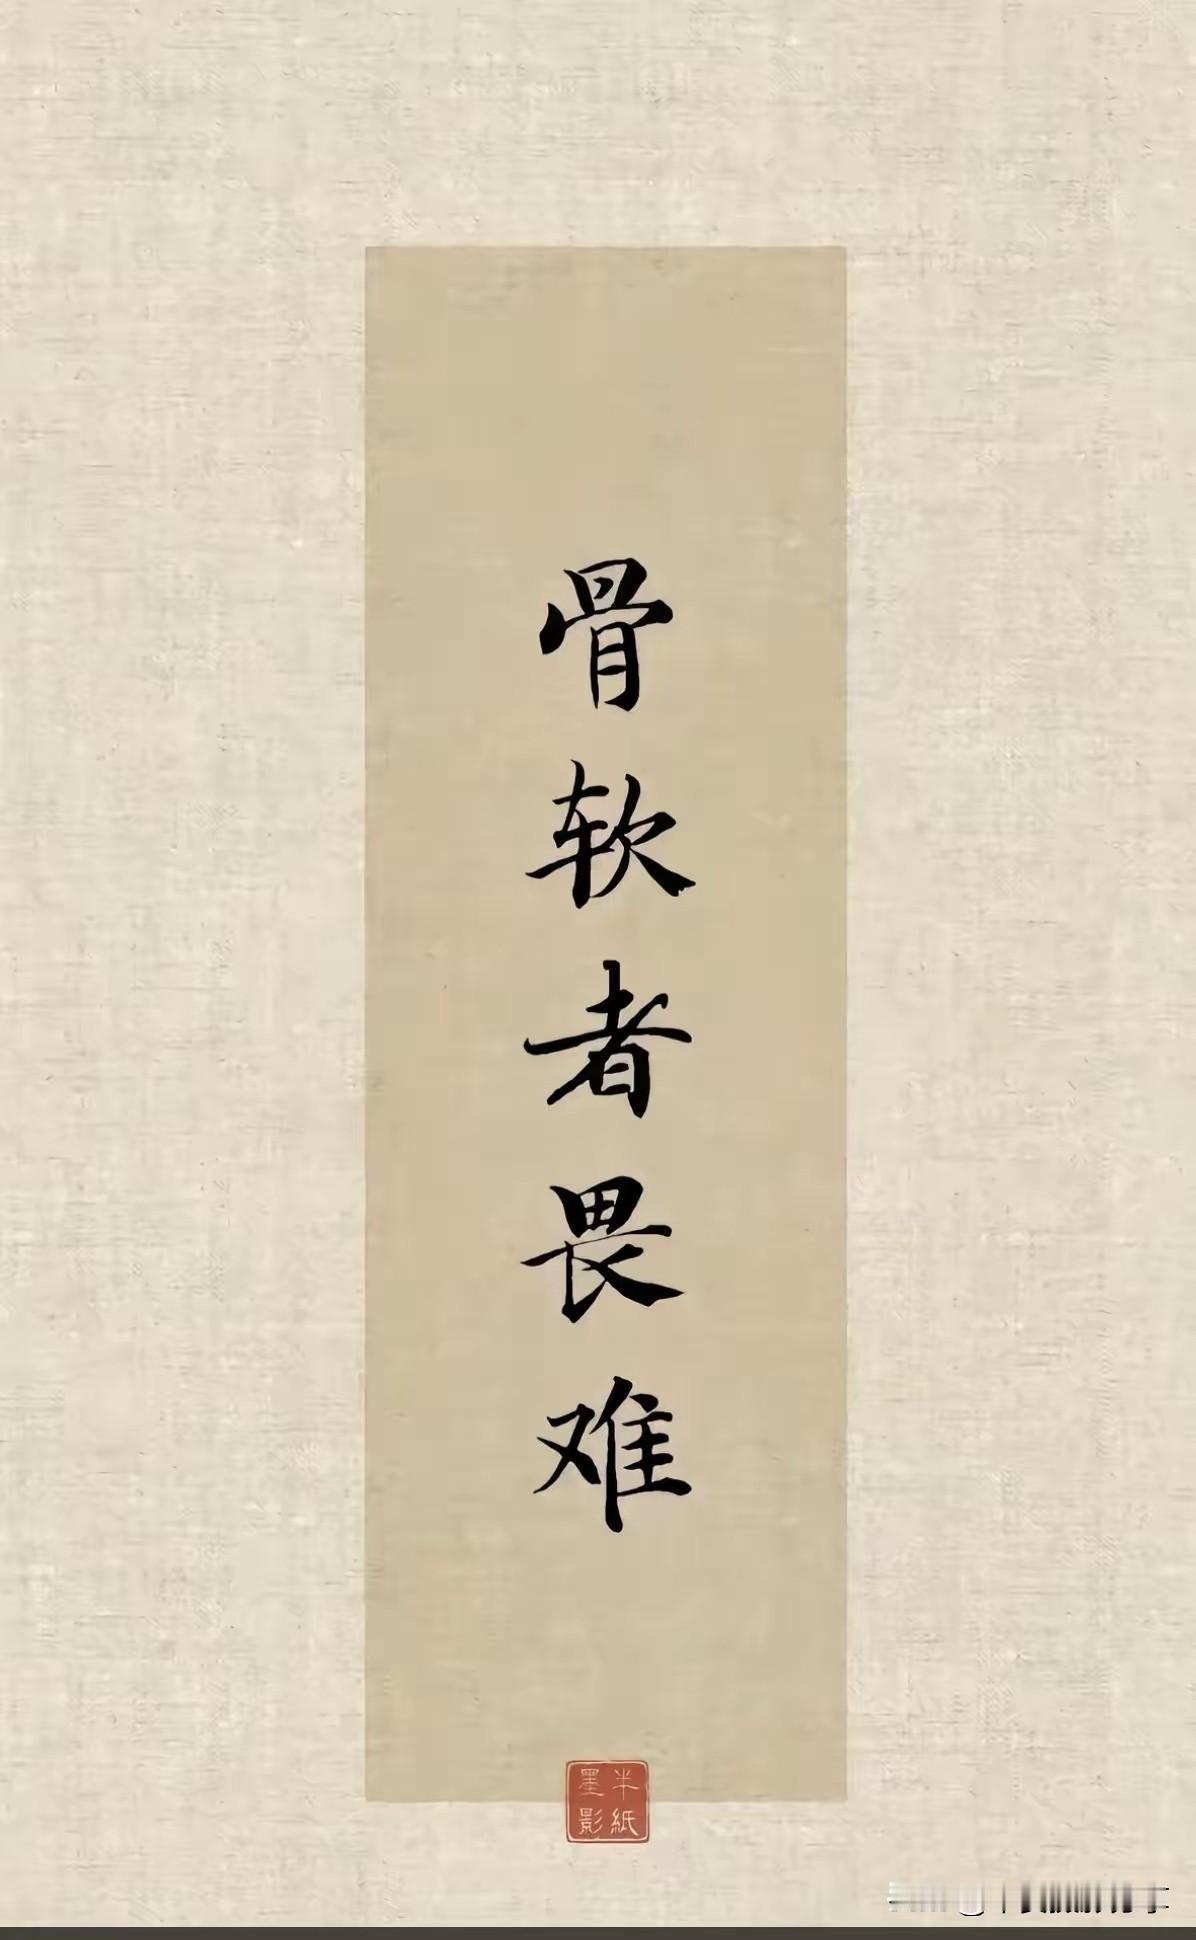 骨软者畏难
半纸
墨影